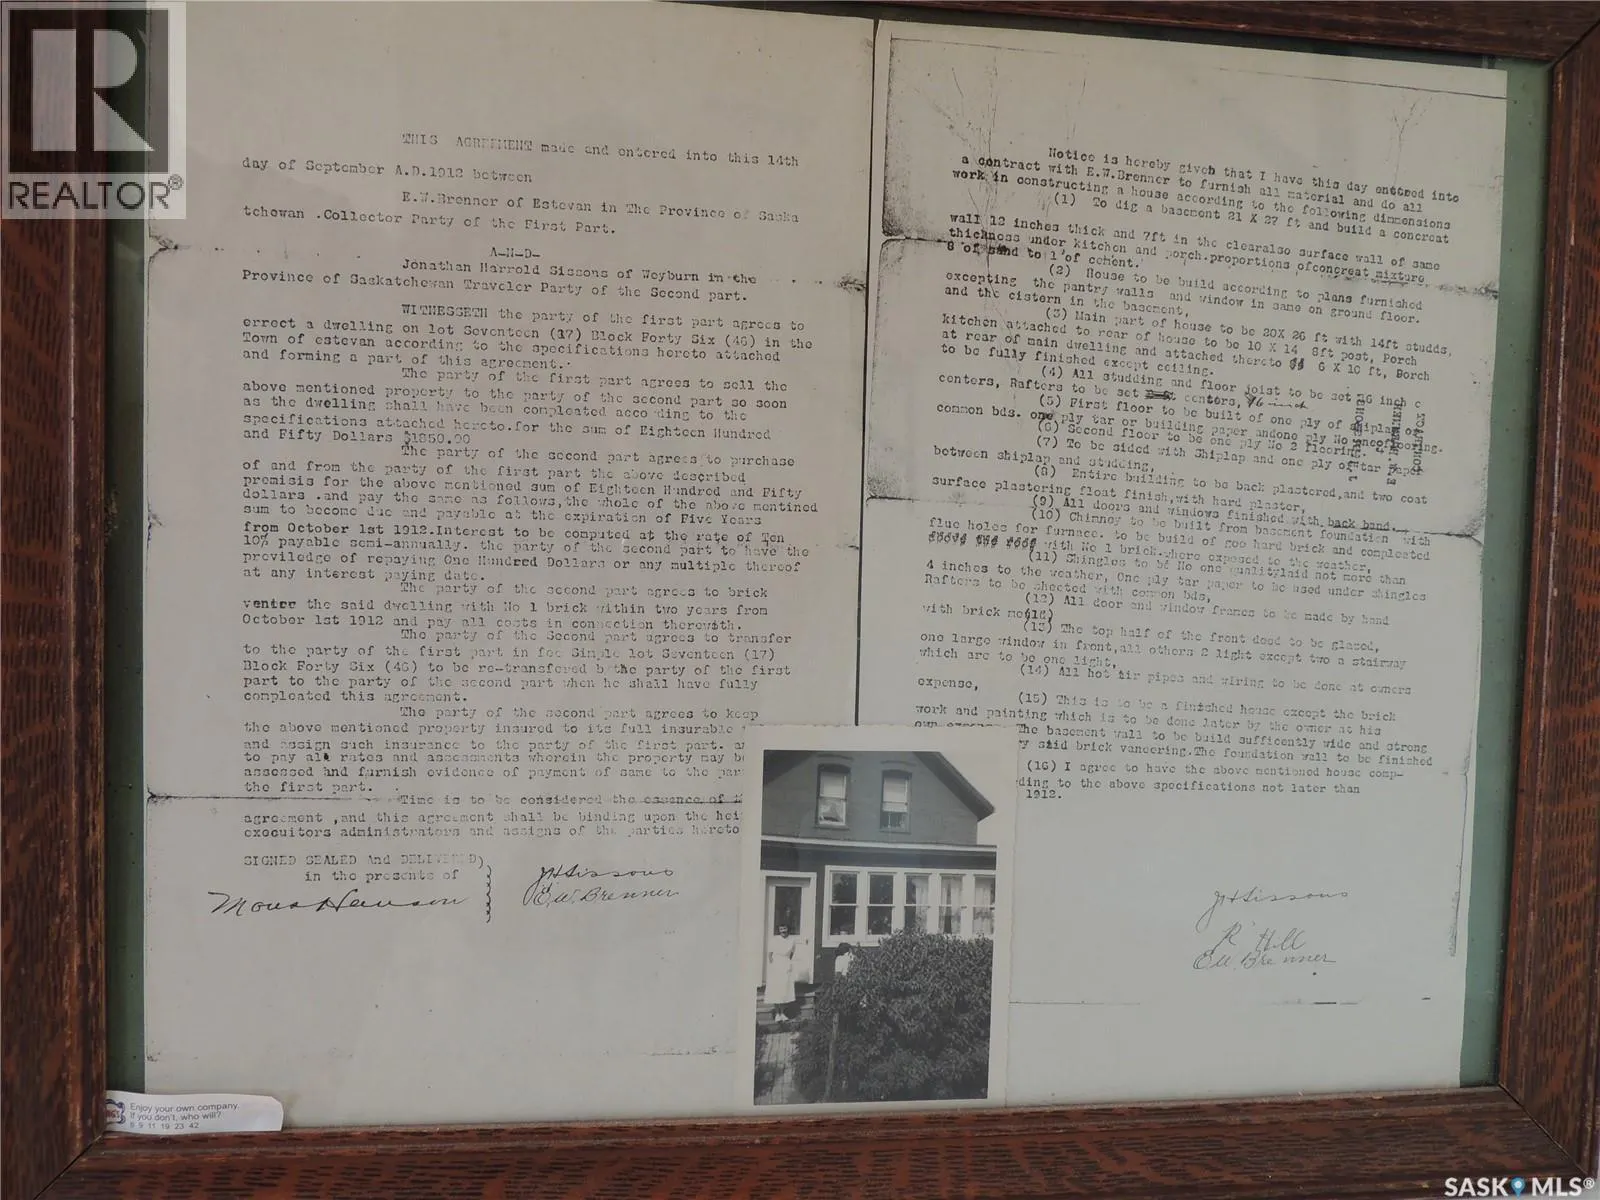 REALTOR®
THIS AGREEMENT made and entered into this 14th
day of September A.D.1912 between
E.W.Brenner of Estevan in The Province of Saska
tchewan .Collector Party of the First Part.
A-N-D-
Jonathan Harrold Sissons of Weyburn in the
Province of Saskatchewan Traveler Party of the Second part.
WITNESSETH the party of the first part agrees to
errect a dwelling on lot Seventeen (17) Block Forty Six (46) in the
Town of estevan according to the specifications hereto attached
and forming a part of this agreement.
The party of the first part agrees to sell the
above mentioned property to the party of the second part so soon
as the dwelling shall have been compleated according to the
specifications attached hereto.for the sum of Eighteen Hundred
and Fifty Dollars $1850.00
The party of the second part agrees to purchase
of and from the party of the first part the above described
premisis for the above mentioned sum of Eighteen Hundred and Fifty
dollars .and pay the same as follows,the whole of the above mentined
sum to become due and payable at the expiration of Five Years
from October 1st 1912.Interest to be computed at the rate of Ten
10% payable semi-annually. the party of the second part to have the
previledge of repaying One Hundred Dollars or any multiple thereof
at any interest paying date.
The party of the second part agrees to brick
the said dwelling with No 1 brick within two years from
October 1st 1912 and pay all costs in connection therewith.
The party of the Second part agrees to transfer
to the party of the first part in fee Simple lot Seventeen (17)
Block Forty Six (46) to be re-transfered b the party of the first
part to the party of the second part when he shall have fully
compleated this agreement.
The party of the second part agrees to keep
the above mentioned property insured to its full insurable
and assign such insurance to the party of the first part.
to pay all rates and assessments wherein the property may b
assessed and furnish evidence of payment of same to the par
the first part.
Time is to be considered the essence of
agreement ,and this agreement shall be binding upon the hei
execuitors administrators and assigns of the parties hereto
SIGNED SEALED And DELIVERED)
in the presents of
JHSissons
E.W. Brenner
Notice is hereby given that I have this day entered into
a contract with E.W.Brenner to furnish all material and do all
work in constructing a house according to the following dimensions
(1) To dig a basement 21 X 27 ft and build a concreat
wall 12 inches thick and 7ft in the clearalso surface wall of same
thickness under kitchen and porch.proportions ofconcreat mixture
8 of sand to 1 of cement.
(2) House to be build according to plans furnished
excepting the pantry walls and window in same on ground floor.
and the cistern in the basement,
(3) Main part of house to be 20X 26 ft with 14ft studds,
kitchen attached to rear of house to be 10 X 14 8ft post, Porch
at rear of main dwelling and attached thereto 6 X 10 ft, Porch
to be fully finished except ceiling.
(4) All studding and floor joist to be set 16 inch c
centers, Rafters to be set centers, 16 inch
(5) First floor to be built of one ply of shiplap or
common bds. one ply tar or building paper andone ply No oneflooring.
(6) Second floor to be one ply No 2 flooring.
(7) To be sided with Shiplap and one ply of tar paper
between shiplap and studding,
(8) Entire building to be back plastered,and two coat
surface plastering float finish,with hard plaster,
(9) All doors and windows finished with back band.
(10) Chimney to be built from basement foundation with
flue holes for furnace. to be build of goo hard brick and compleated
with No 1 brick.where exposed to the weather,
(11) Shingles to be No one qualitylaid not more than
4 inches to the weather, One ply tar paper to be used under shingles
Rafters to be sheeted with common bds,
(12) All door and window frames to be made by hand
with brick mould,
(13) The top half of the front dood to be glazed,
one large window in front,all others 2 light except two a stairway
which are to be one light,
(14) All hot air pipes and wiring to be done at owners
expense,
(15) This is to be a finished house except the brick
work and painting which is to be done later by the owner at his
own expense. The basement wall to be build sufficently wide and strong
ry said brick vaneering.The foundation wall to be finished
(16) I agree to have the above mentioned house comp-
ding to the above specifications not later than
1912.
JHSissons
R Hill
E.W. Brenner
Enjoy your own company.
If you don't, who will?
8 9 11 19 23 42
SASK MLS®